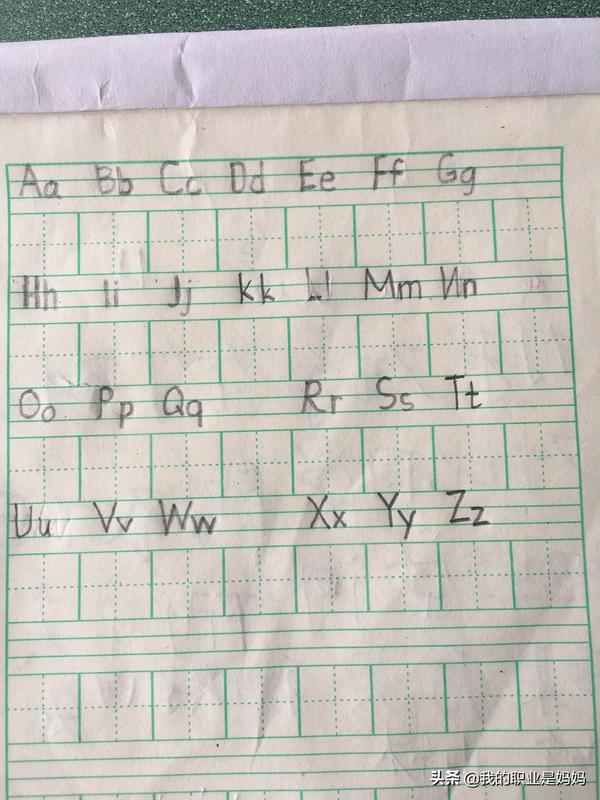 Aa Bb Cc Dd Ee Ff Gg
Hh Ii Jj Kk Ll Mm Nn
Oo Pp Qq Rr Ss Tt
Uu Vv Ww Xx Yy Zz
头条 @我的职业是妈妈